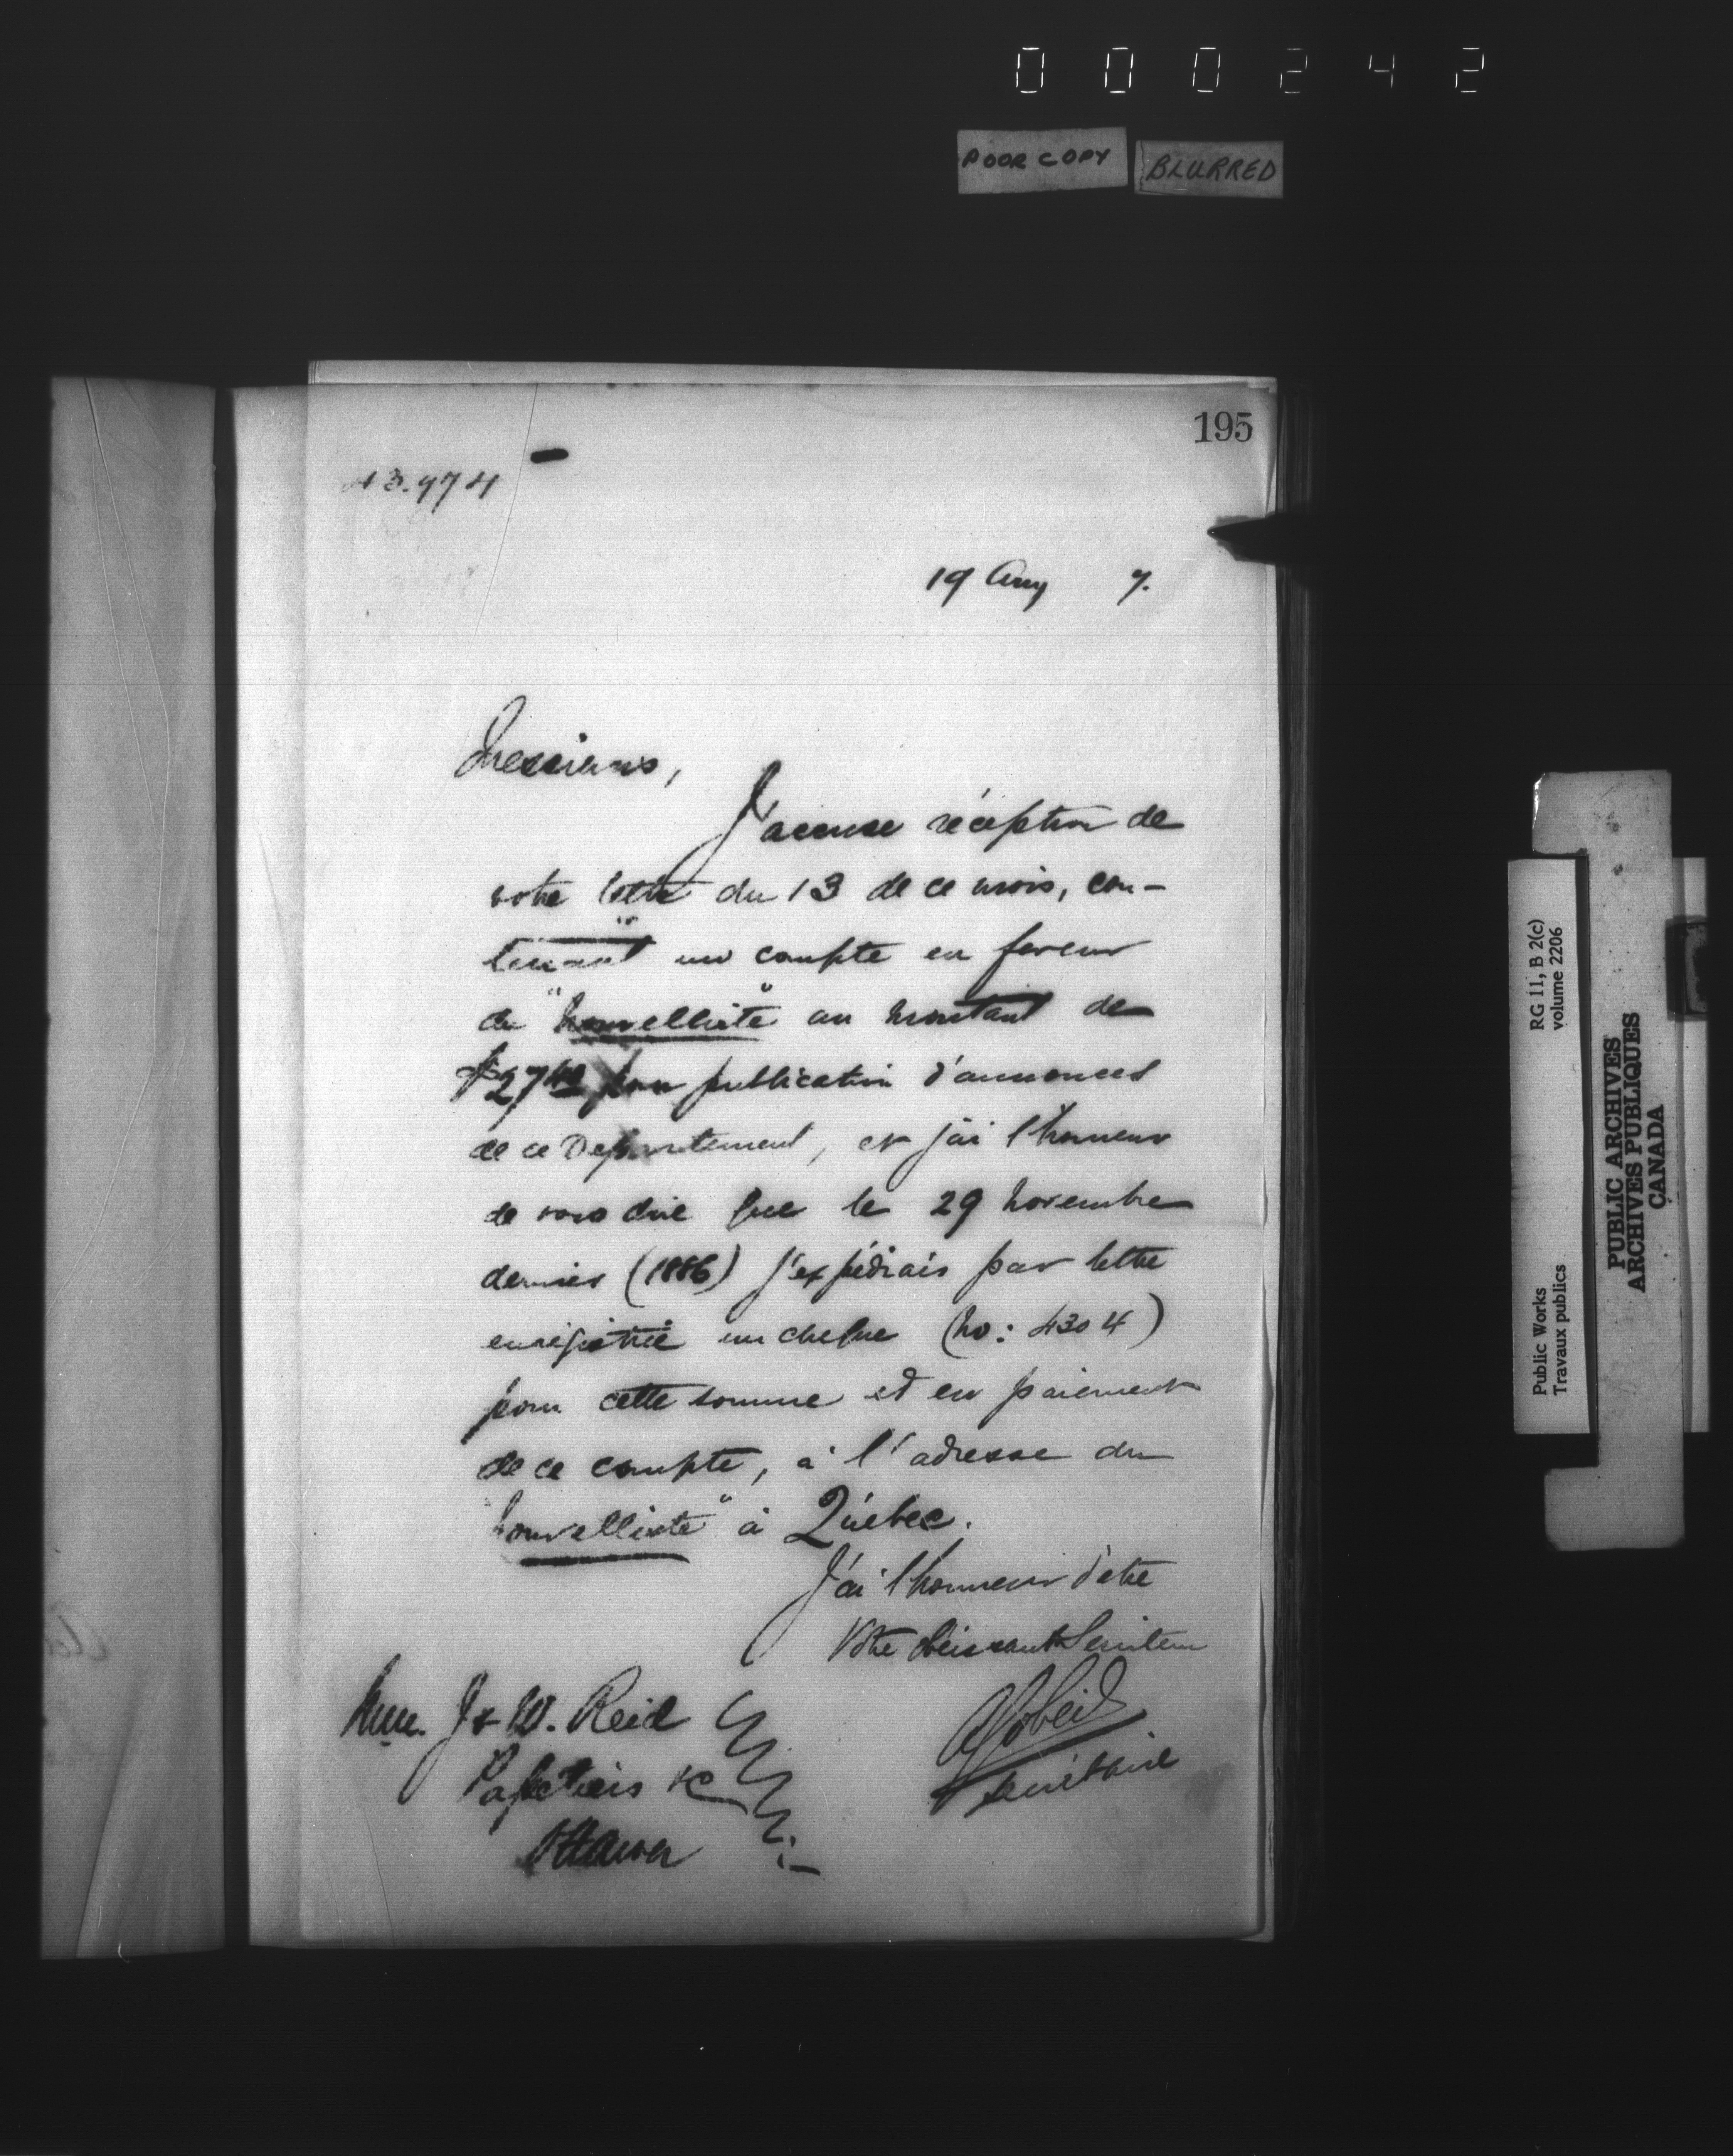 000242
POOR COPY BLURRED
195
43.974
19 Aug 7.
Messieurs,
J'accuse réception de
votre lettre du 13 de ce mois, con-
tenant un compte en faveur
du "Nouvelliste" au montant de
$27.40 pour publication d'annonces
de ce Département, et j'ai l'honneur
de vous dire que le 29 Novembre
dernier (1886) j'expédiais par lettre
enrégistrée un cheque (No: 4304)
pour cette somme et en paiement
de ce compte, à l'adresse du
"Nouvelliste" à Québec.
J'ai l'honneur d'etre
Votre obéissant Serviteur
AGobeil
Secrétaire
J & W. Reid
Papetiers &c
Ottawa
Public Works
Travaux publics
RG 11, B 2(c)
volume 2206
PUBLIC ARCHIVES
ARCHIVES PUBLIQUES
CANADA